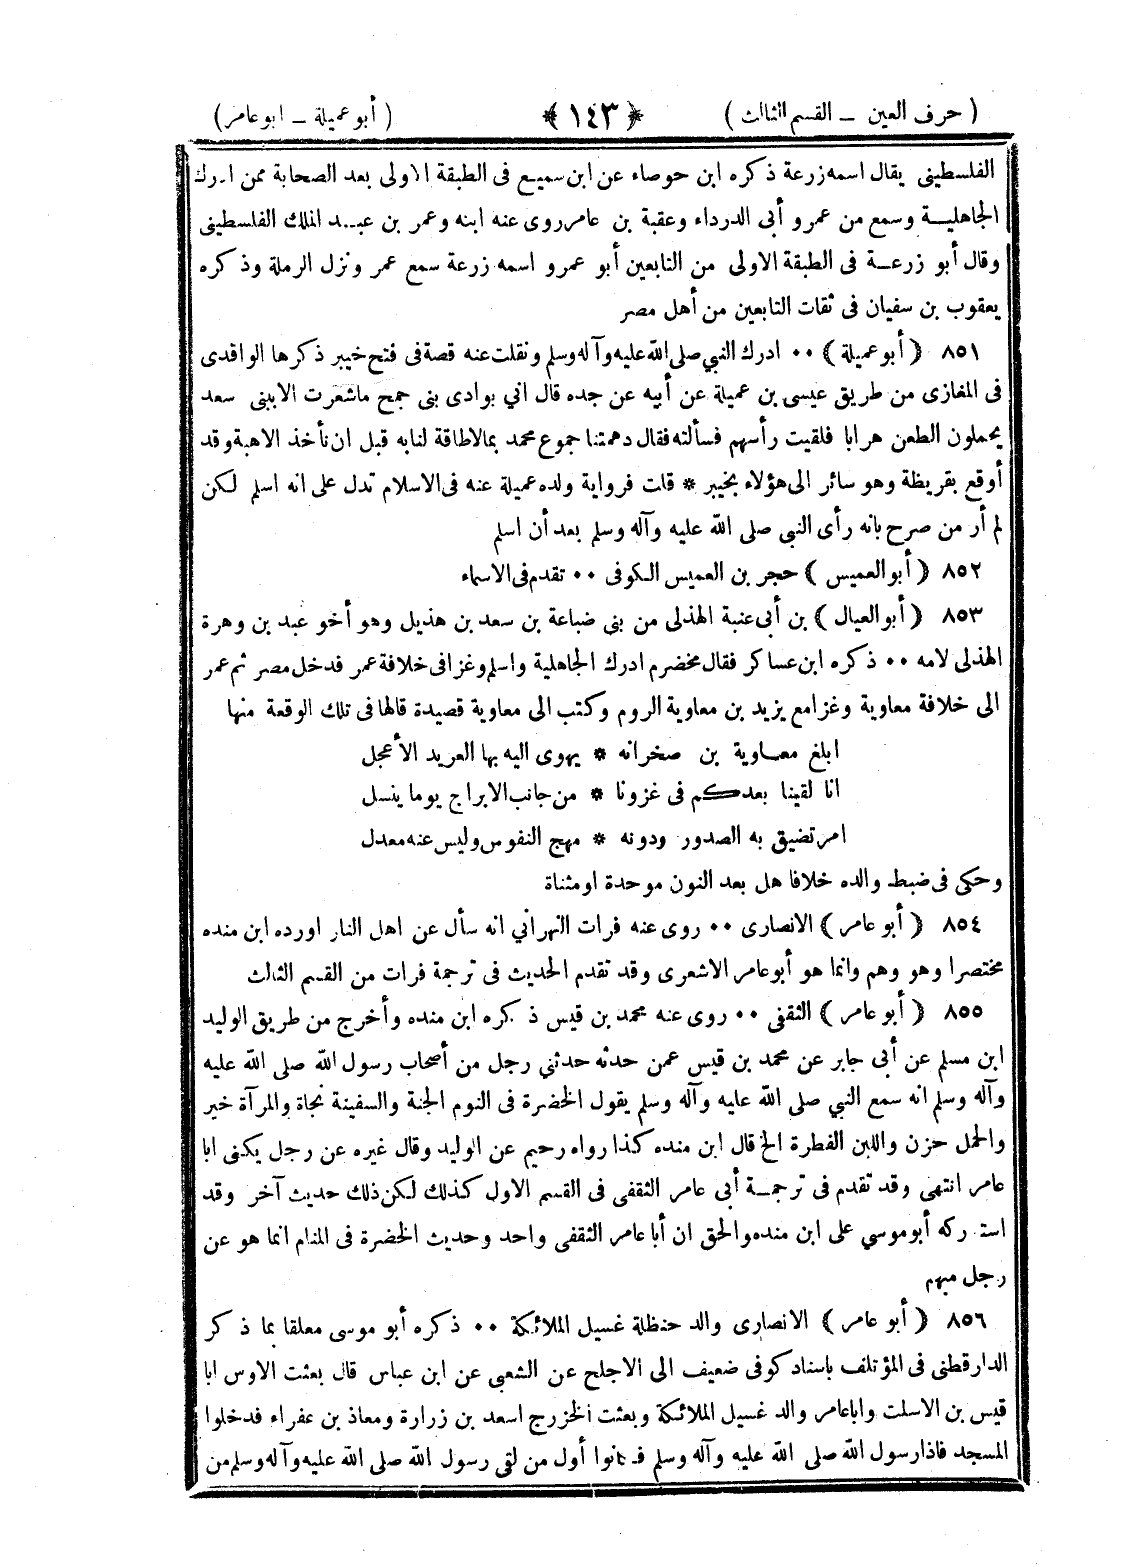 ( حرف العين – القسم الثالث ) ﴿ ١٤٣ ﴾ ( أبو عميلة – ابو عامر )
الفلسطينى يقال اسمه زرعة ذكره ابن حوصاء عن ابن سميع فى الطبقة الاولى بعد الصحابة ممن ادرك
الجاهلية وسمع من عمرو أبى الدرداء وعقبة بن عامر روى عنه ابنه وعمر بن عبد الملك الفلسطينى
وقال أبو زرعة فى الطبقة الاولى من التابعين أبو عمرو اسمه زرعة سمع عمر ونزل الرملة وذكره
يعقوب بن سفيان فى ثقات التابعين من أهل مصر
٨٥١ ( أبو عميلة ) ٠٠ ادرك النبي صلى الله عليه وآله وسلم ونقلت عنه قصة فى فتح خيبر ذكرها الواقدى
فى المغازى من طريق عيسى بن عميلة عن أبيه عن جده قال اني بوادى بنى جمح ماشعرت الاببنى سعد
يحملون الظعن هرابا فلقيت رأسهم فسألته فقال دهمتنا جموع محمد بمالاطاقة لنابه قبل ان نأخذ الاهبة وقد
أوقع بقريظة وهو سائر الى هؤلاء بخيبر * قلت فرواية ولده عميلة عنه فى الاسلام تدل على انه اسلم لكن
لم أر من صرح بانه رأى النبى صلى الله عليه وآله وسلم بعد أن اسلم
٨٥٢ ( أبو العميس ) حجر بن العميس الكوفى ٠٠ تقدم فى الاسماء
٨٥٣ ( أبو العيال ) بن أبى عنبة الهذلى من بنى ضباعة بن سعد بن هذيل وهو أخو عبد بن وهرة
الهذلى لامه ٠٠ ذكره ابن عساكر فقال مخضرم ادرك الجاهلية واسلم وغزا فى خلافة عمر فدخل مصر ثم عمر
الى خلافة معاوية وغزا مع يزيد بن معاوية الروم وكتب الى معاوية قصيدة قالها فى تلك الوقعة منها
ابلغ معاوية بن صخرانه * يهوى اليه بها العريد الأعجل
انا لقينا بعدكم فى غزونا * من جانب الابراج يوما ينسل
امر تضيق به الصدور ودونه * مهج النفوس وليس عنه معدل
وحكى فى ضبط والده خلافا هل بعد النون موحدة او مثناة
٨٥٤ ( أبو عامر ) الانصارى ٠٠ روى عنه فرات النهرانى انه سأل عن اهل النار اورده ابن منده
مختصرا وهو وهم وانما هو أبو عامر الاشعرى وقد تقدم الحديث فى ترجمة فرات من القسم الثالث
٨٥٥ ( أبو عامر ) الثقفى ٠٠ روى عنه محمد بن قيس ذكره ابن منده وأخرج من طريق الوليد
ابن مسلم عن أبى جابر عن محمد بن قيس عمن حدثه حدثني رجل من أصحاب رسول الله صلى الله عليه
وآله وسلم انه سمع النبي صلى الله عليه وآله وسلم يقول الخضرة فى النوم الجنة والسفينة نجاة والمرآة خير
والحمل حزن واللبن الفطرة الخ قال ابن منده كذا رواه رحيم عن الوليد وقال غيره عن رجل يكنى ابا
عامر انتهى وقد تقدم فى ترجمة أبى عامر الثقفى فى القسم الاول كذلك لكن ذلك حديث آخر وقد
است ركه أبو موسي على ابن منده والحق ان أبا عامر الثقفى واحد وحديث الخضرة فى المنام انما هو عن
رجل مبهم
٨٥٦ ( أبو عامر ) الانصارى والد حنظلة غسيل الملائكة ٠٠ ذكره أبو موسى معلقا بما ذكر
الدارقطنى فى المؤتلف باسناد كوفى ضعيف الى الاجلح عن الشعبى عن ابن عباس قال بعثت الاوس ابا
قيس بن الاسلت وابا عامر والد غسيل الملائكة وبعثت الخزرج اسعد بن زرارة ومعاذ بن عفراء فدخلوا
المسجد فاذا رسول الله صلى الله عليه وآله وسلم فكانوا أول من لقى رسول الله صلى الله عليه وآله وسلم من